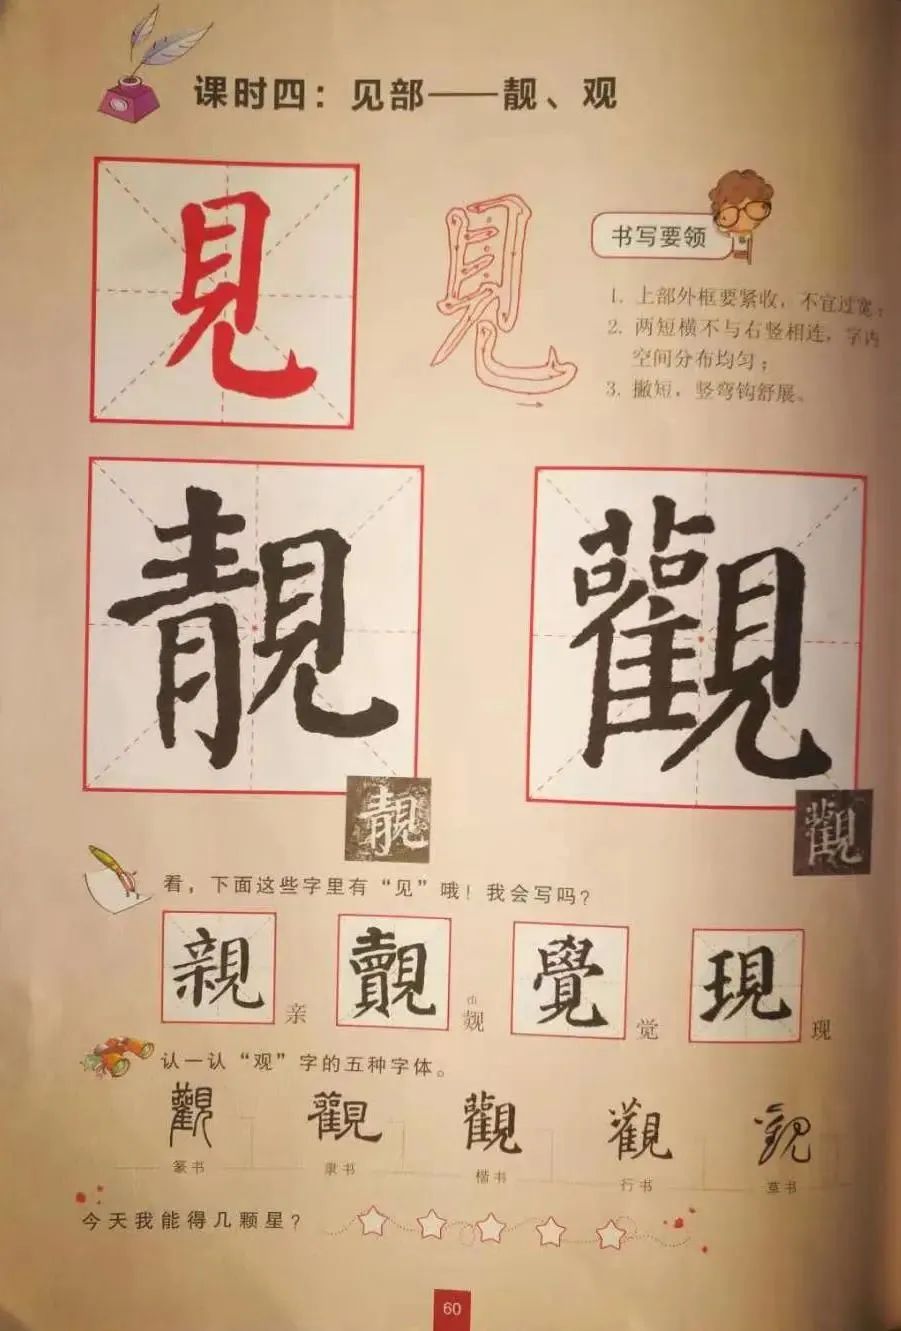 课时四：见部——靓、观
見
見
书写要领
1. 上部外框要紧收，不宜过宽；
2. 两短横不与右竖相连，字内
空间分布均匀；
3. 撇短，竖弯钩舒展。
靚
觀
靚
觀
看，下面这些字里有“见”哦！我会写吗？
親 亲
覿 dí 觌
覺 觉
現 现
认一认“观”字的五种字体。
觀 觀 觀 觀 觀
篆书 隶书 楷书 行书 草书
今天我能得几颗星？
60